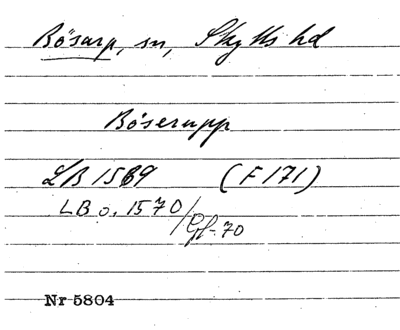 Bösarp, sn, Skytts hd
Böserupp
LB 1569 (F 171)
LB o. 1570/Gf-70
Nr 5804